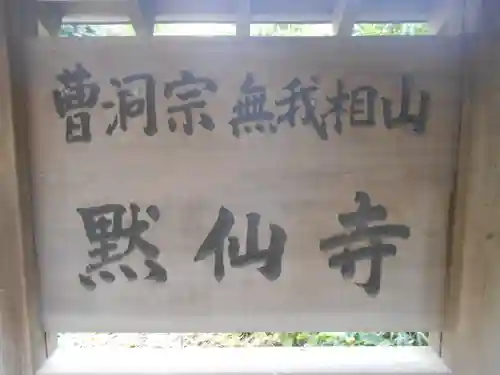 曹洞宗無我相山
黙仙寺